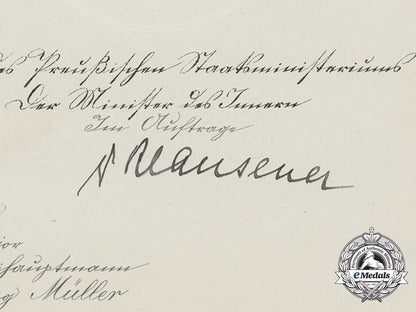 des Preußischen Staatsministeriums
Der Minister des Innern
Im Auftrage
Klausener
ior
ihauptmann
g Müller
eMedals